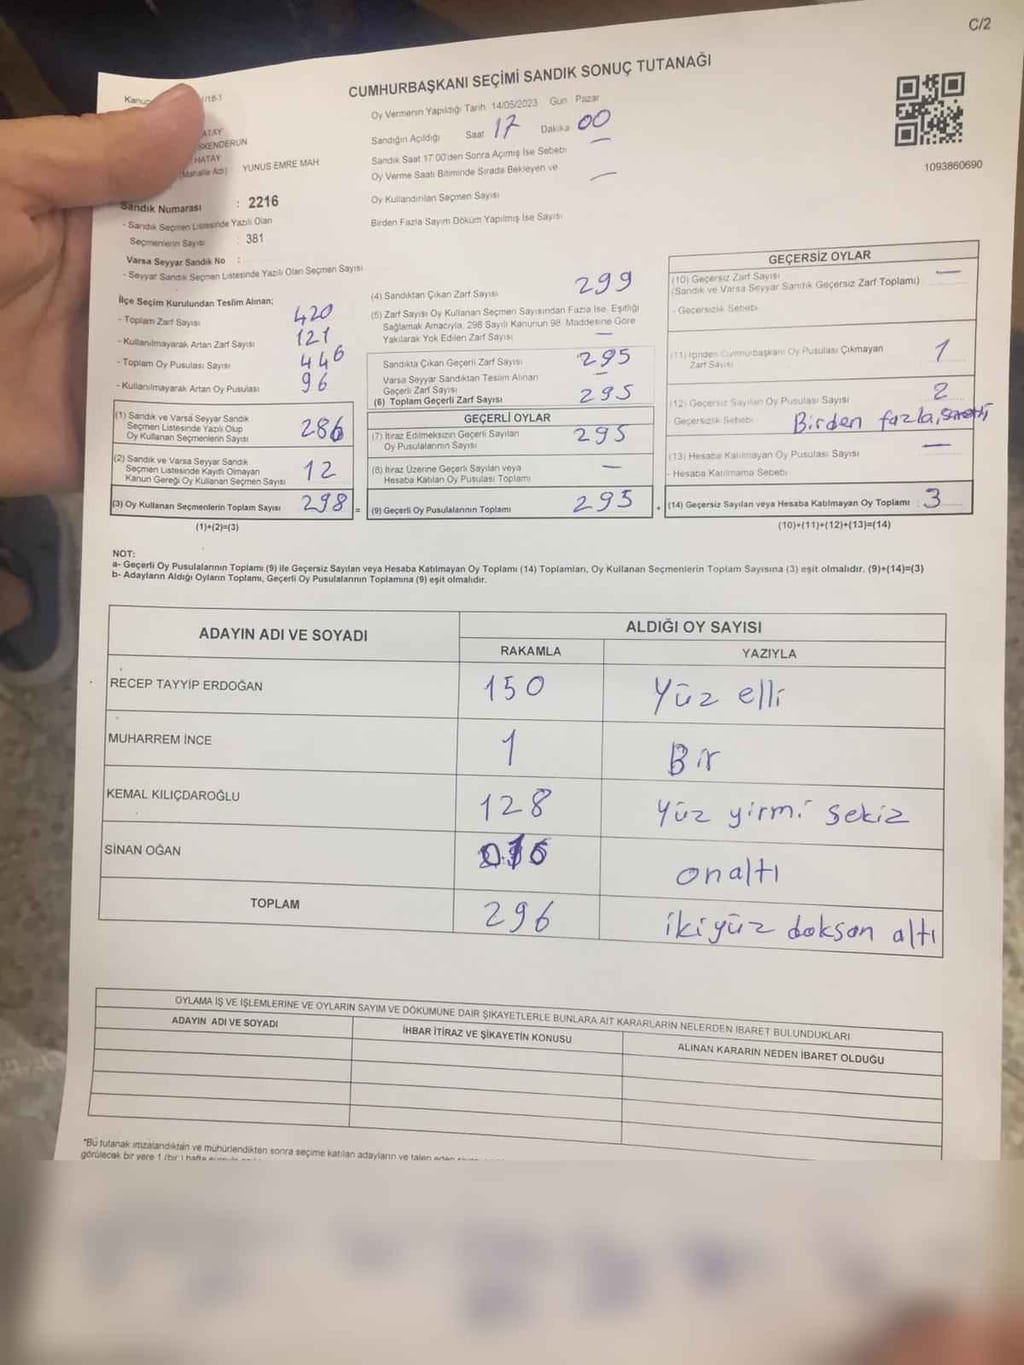 C/2
CUMHURBAŞKANI SEÇİMİ SANDIK SONUÇ TUTANAĞI
/18-1
Oy Vermenin Yapıldığı Tarih 14/05/2023 Gün Pazar
Sandığın Açıldığı Saat 17 Dakika 00
Sandık Saat 17 00'den Sonra Açımış İse Sebebi
Oy Verme Saati Bitiminde Sırada Bekleyen ve —
Oy Kullandırılan Seçmen Sayısı
Birden Fazla Sayım Döküm Yapılmış İse Sayısı
1093860690
ATAY
SKENDERUN
HATAY
Mahalle Adı) YUNUS EMRE MAH
Sandık Numarası : 2216
- Sandık Seçmen Listesinde Yazılı Olan
Seçmenlerin Sayısı : 381
Varsa Seyyar Sandık No :
- Seyyar Sandık Seçmen Listesinde Yazılı Olan Seçmen Sayısı
İlçe Seçim Kurulundan Teslim Alınan;
- Toplam Zarf Sayısı 420
- Kullanılmayarak Artan Zarf Sayısı 121
- Toplam Oy Pusulası Sayısı 446
- Kullanılmayarak Artan Oy Pusulası 96
(1) Sandık ve Varsa Seyyar Sandık
Seçmen Listesinde Yazılı Olup
Oy Kullanan Seçmenlerin Sayısı 286
(2) Sandık ve Varsa Seyyar Sandık
Seçmen Listesinde Kayıtlı Olmayan
Kanun Gereği Oy Kullanan Seçmen Sayısı 12
(3) Oy Kullanan Seçmenlerin Toplam Sayısı 298 =
(1)+(2)=(3)
(4) Sandıktan Çıkan Zarf Sayısı 299
(5) Zarf Sayısı Oy Kullanan Seçmen Sayısından Fazla İse, Eşitliği
Sağlamak Amacıyla, 298 Sayılı Kanunun 98. Maddesine Göre
Yakılarak Yok Edilen Zarf Sayısı —
Sandıkta Çıkan Geçerli Zarf Sayısı 295
Varsa Seyyar Sandıktan Teslim Alınan
Geçerli Zarf Sayısı —
(6) Toplam Geçerli Zarf Sayısı 295
GEÇERLİ OYLAR
(7) İtiraz Edilmeksizin Geçerli Sayılan
Oy Pusulalarının Sayısı 295
(8) İtiraz Üzerine Geçerli Sayılan veya
Hesaba Katılan Oy Pusulası Toplamı —
(9) Geçerli Oy Pusulalarının Toplamı 295 +
GEÇERSİZ OYLAR
(10) Geçersiz Zarf Sayısı —
(Sandık ve Varsa Seyyar Sandık Geçersiz Zarf Toplamı)
- Geçersizlik Sebebi
(11) İçinden Cumhurbaşkanı Oy Pusulası Çıkmayan
Zarf Sayısı 1
(12) Geçersiz Sayılan Oy Pusulası Sayısı 2
Geçersizlik Sebebi Birden fazla,
(13) Hesaba Katılmayan Oy Pusulası Sayısı —
- Hesaba Katılmama Sebebi
(14) Geçersiz Sayılan veya Hesaba Katılmayan Oy Toplamı : 3
(10)+(11)+(12)+(13)=(14)
NOT:
a- Geçerli Oy Pusulalarının Toplamı (9) ile Geçersiz Sayılan veya Hesaba Katılmayan Oy Toplamı (14) Toplamları, Oy Kullanan Seçmenlerin Toplam Sayısına (3) eşit olmalıdır. (9)+(14)=(3)
b- Adayların Aldığı Oyların Toplamı, Geçerli Oy Pusulalarının Toplamına (9) eşit olmalıdır.
ADAYIN ADI VE SOYADI ALDIĞI OY SAYISI
RAKAMLA YAZIYLA
RECEP TAYYİP ERDOĞAN 150 Yüz elli
MUHARREM İNCE 1 Bir
KEMAL KILIÇDAROĞLU 128 Yüz yirmi sekiz
SİNAN OĞAN onaltı
TOPLAM 296 ikiyüz doksan altı
OYLAMA İŞ VE İŞLEMLERİNE VE OYLARIN SAYIM VE DÖKÜMÜNE DAİR ŞİKAYETLERLE BUNLARA AİT KARARLARIN NELERDEN İBARET BULUNDUKLARI
ADAYIN ADI VE SOYADI İHBAR İTİRAZ VE ŞİKAYETİN KONUSU ALINAN KARARIN NEDEN İBARET OLDUĞU
*Bu tutanak imzalandıktan ve mühürlendikten sonra seçime katılan adayların ve talep eden
görülecek bir yere 1 (bir) hafta